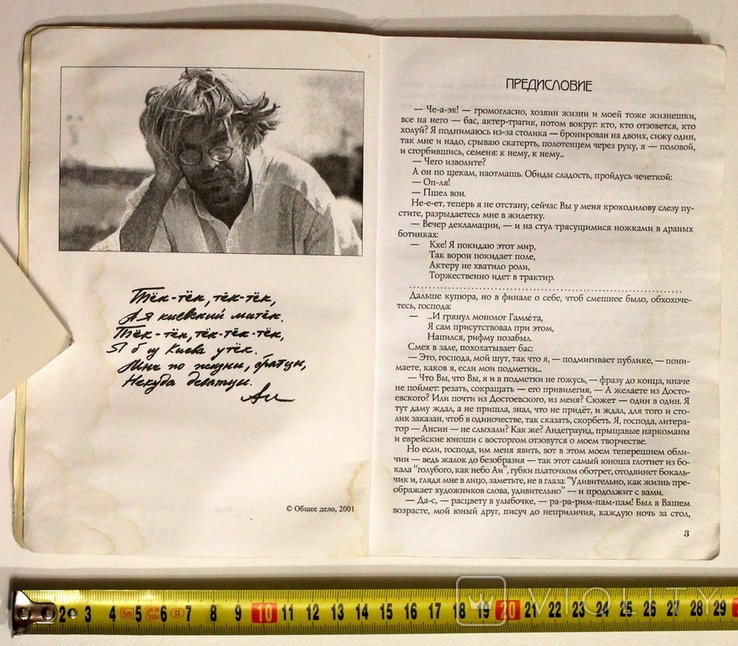 Тёк-тёк, тёк-тёк,
А я киевский митёк.
Тёк-тёк, тёк-тёк-тёк,
Я б из Киева утёк.
Мне по жизни, братцы,
Некуда деваться.
© Общее дело, 2001
ПРЕДИСЛОВИЕ
— Че-а-эк! — громогласно, хозяин жизни и моей тоже жизнешки,
все на него — бас, актер-трагик, потом вокруг: кто, кто отзовется, кто
холуй? Я поднимаюсь из-за столика — бронирован на двоих, сижу один,
так мне и надо, срываю скатерть, полотенцем через руку, я — половой,
и сгорбившись, семеня: к нему, к нему..
— Чего изволите?
А он по щекам, наотмашь. Обиды сладость, пройдусь чечеткой:
— Оп-ля!
— Пшел вон.
Не-е-ет, теперь я не отстану, сейчас Вы у меня крокодилову слезу пу-
стите, разрыдаетесь мне в жилетку.
— Вечер декламации, — и на стул трясущимися ножками в драных
ботинках:
— Кхе! Я покидаю этот мир,
Так ворон покидает поле,
Актеру не хватило роли,
Торжественно идет в трактир.
Дальше купюра, но в финале о себе, чтоб смешнее было, обхохоче-
тесь, господа:
— ..И грянул монолог Гамлёта,
Я сам присутствовал при этом,
Напился, рифму позабыл.
Смех в зале, похохатывает бас:
— Это, господа, мой шут, так что я, — подмигивает публике, — пони-
маете, каков я, если мои подметки..
— Что Вы, что Вы, я и в подметки не гожусь, — фразу до конца, иначе
не поймет: резать, сокращать — его привилегия, — А желаете из Досто-
евского? Или почти из Достоевского, из меня? Сюжет — один в один. Я
тут даму ждал, а не пришла, знал, что не придёт, и ждал, для того и сто-
лик заказан, чтоб в одиночестве, так сказать, скорбеть. Я, господа, литера-
тор — Ансин — не слыхали? Как же? Андеграунд, прыщавые наркоманы
и еврейские юноши с восторгом отзовутся о моем творчестве.
Но если, господа, им меня явить, вот в этом моем теперешнем обли-
чии — ведь жалок до безобразия — так этот самый юноша глотнет из бо-
кала "голубого, как небо Аи", губки платочком оботрет, отодвинет бокаль-
чик и, глядя мне в лицо, заметьте, не в глаза: "Удивительно, как жизнь пре-
ображает художников слова, удивительно" — и продолжит с вами.
— Да-с, — расцвету в улыбочке, — ра-ра-рим-пам-пам! Был в Вашем
возрасте, мой юный друг, писуч до неприличия, каждую ночь за стол,
3
2 3 4 5 6 7 8 9 10 11 12 13 14 15 16 17 18 19 20 21 22 23 24 25 26 27 28 29
VIOLITY